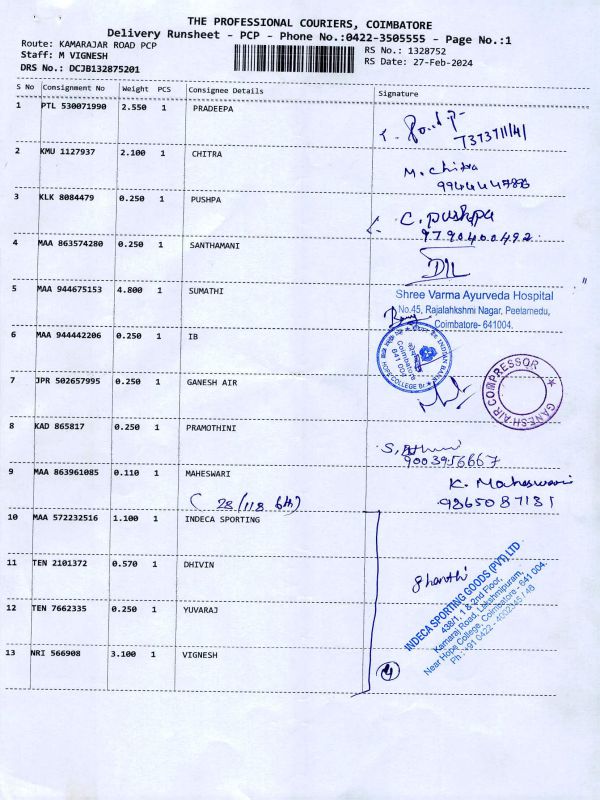 THE PROFESSIONAL COURIERS, COIMBATORE
Delivery Runsheet - PCP - Phone No.:0422-3505555 - Page No.:1
Route: KAMARAJAR ROAD PCP
RS No.: 1328752
Staff: M VIGNESH
RS Date: 27-Feb-2024
DRS No.: DCJB132875201
S No Consignment No Weight PCS Consignee Details Signature
1 PTL 530071990 2.550 1 PRADEEPA
2 KMU 1127937 2.100 1 CHITRA
M. Chitra
3 KLK 8084479 0.250 1 PUSHPA
C. pushpa
9790400492
4 MAA 863574280 0.250 1 SANTHAMANI
5 MAA 944675153 4.800 1 SUMATHI
Shree Varma Ayurveda Hospital
No.45, Rajalahkshmi Nagar, Peelamedu,
Coimbatore- 641004.
6 MAA 944442206 0.250 1 IB
INDIAN BANK
HOPE COLLEGE Br.
Coimbatore
641 004
7 JPR 502657995 0.250 1 GANESH AIR
GANESH AIR COMPRESSOR
8 KAD 865817 0.250 1 PRAMOTHINI
9003956667
9 MAA 863961085 0.110 1 MAHESWARI
K. Maheswari
9865087181
10 MAA 572232516 1.100 1 INDECA SPORTING
11 TEN 2101372 0.570 1 DHIVIN
Shanthi
12 TEN 7662335 0.250 1 YUVARAJ
INDECA SPORTING GOODS (PVT) LTD
438/1, 1 & 2nd Floor,
Kamaraj Road, Lakshmipuram,
Near Hope College, Coimbatore - 641 004.
Ph : +91 0422 - 4002345 / 46
13 NRI 566908 3.100 1 VIGNESH
4